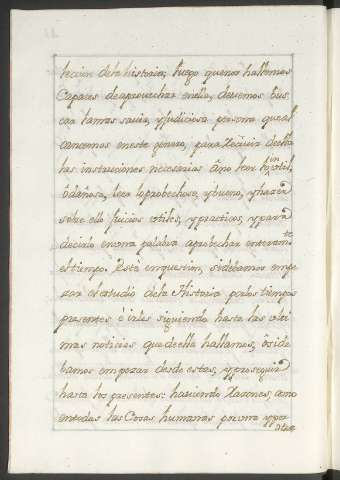 leccion dela historia; luego quenos hallemos
Capaces deaprovechar enella, devemos bus
car lamas savia, y Judiciosa persona queal
cancemos eneste genero, para Recivir deella
las instruciones necesarias â no leer lo inutil,
ô dañoso, leer loprobechoso, y bueno, y hazer
sobre ello juicios utiles, y practicos, y para
decirlo enuna palabra aprobechar enteram.te
el tiempo. Esté enquestion, sidebamos empe
zar el estudio dela Historia por los tiempos
presentes ê irles siguiendo hasta las ulti
mas noticias que deella hallamos, ô si de
bamos empezar desde estas, y proseguir
hasta los presentes: haviendo Razones, como
entodas las Cosas humanas por una y por
otra